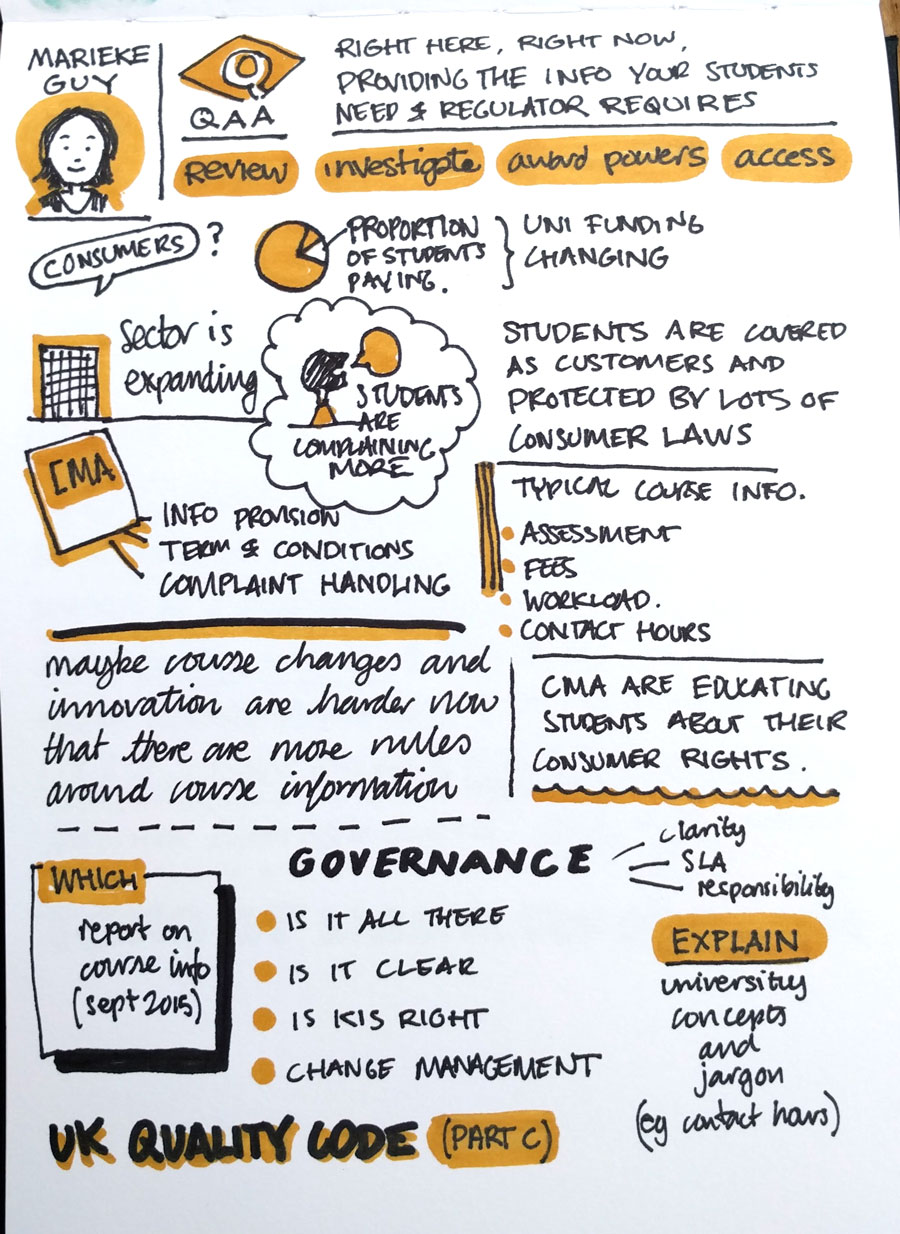 MARIEKE
GUY
Q
QAA
RIGHT HERE, RIGHT NOW,
PROVIDING THE INFO YOUR STUDENTS
NEED & REGULATOR REQUIRES
REVIEW
investigate
award powers
access
CONSUMERS ?
PROPORTION
OF STUDENTS
PAYING.
UNI FUNDING
CHANGING
Sector is
expanding
STUDENTS
ARE
COMPLAINING
MORE
STUDENTS ARE COVERED
AS CUSTOMERS AND
PROTECTED BY LOTS OF
CONSUMER LAWS
CMA
INFO PROVISION
TERM & CONDITIONS
COMPLAINT HANDLING
TYPICAL COURSE INFO.
ASSESSMENT
FEES
WORKLOAD.
CONTACT HOURS
maybe course changes and
innovation are harder now
that there are more rules
around course information
CMA ARE EDUCATING
STUDENTS ABOUT THEIR
CONSUMER RIGHTS.
GOVERNANCE
clarity
SLA
responsibility
WHICH
report on
course info
(sept 2015)
IS IT ALL THERE
IS IT CLEAR
IS KIS RIGHT
CHANGE MANAGEMENT
EXPLAIN
university
concepts
and
jargon
(eg contact hours)
UK QUALITY CODE (PART C)